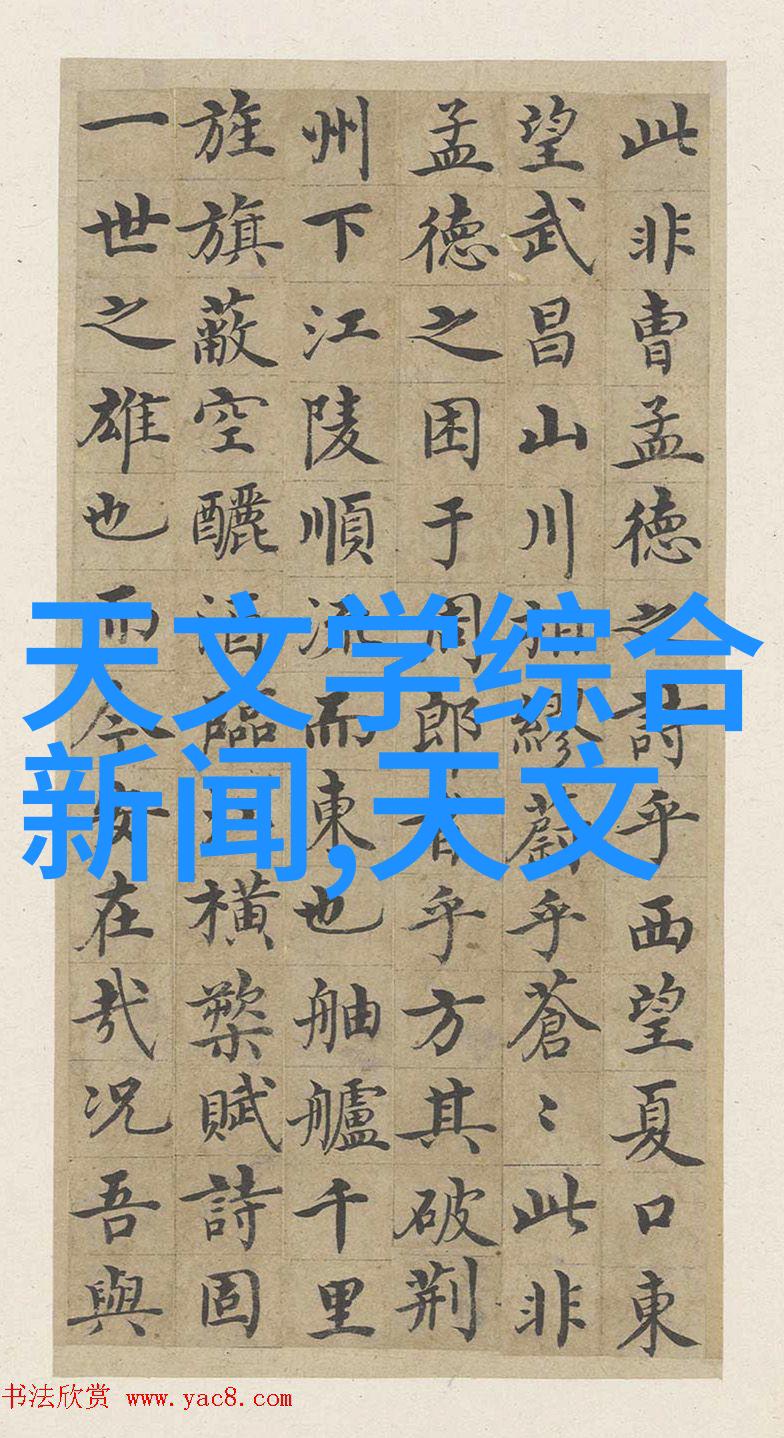 此非曹孟德之詩乎西望夏口東
望武昌山川相繆蔚乎蒼〻此非
孟德之困于周郎者乎方其破荆
州下江陵順流而東也舳艫千里
旌旗蔽空釃酒臨江横槊賦詩固
一世之雄也而今安在哉况吾與
天文学综合
新闻,天文
书法欣赏 www.yac8.com